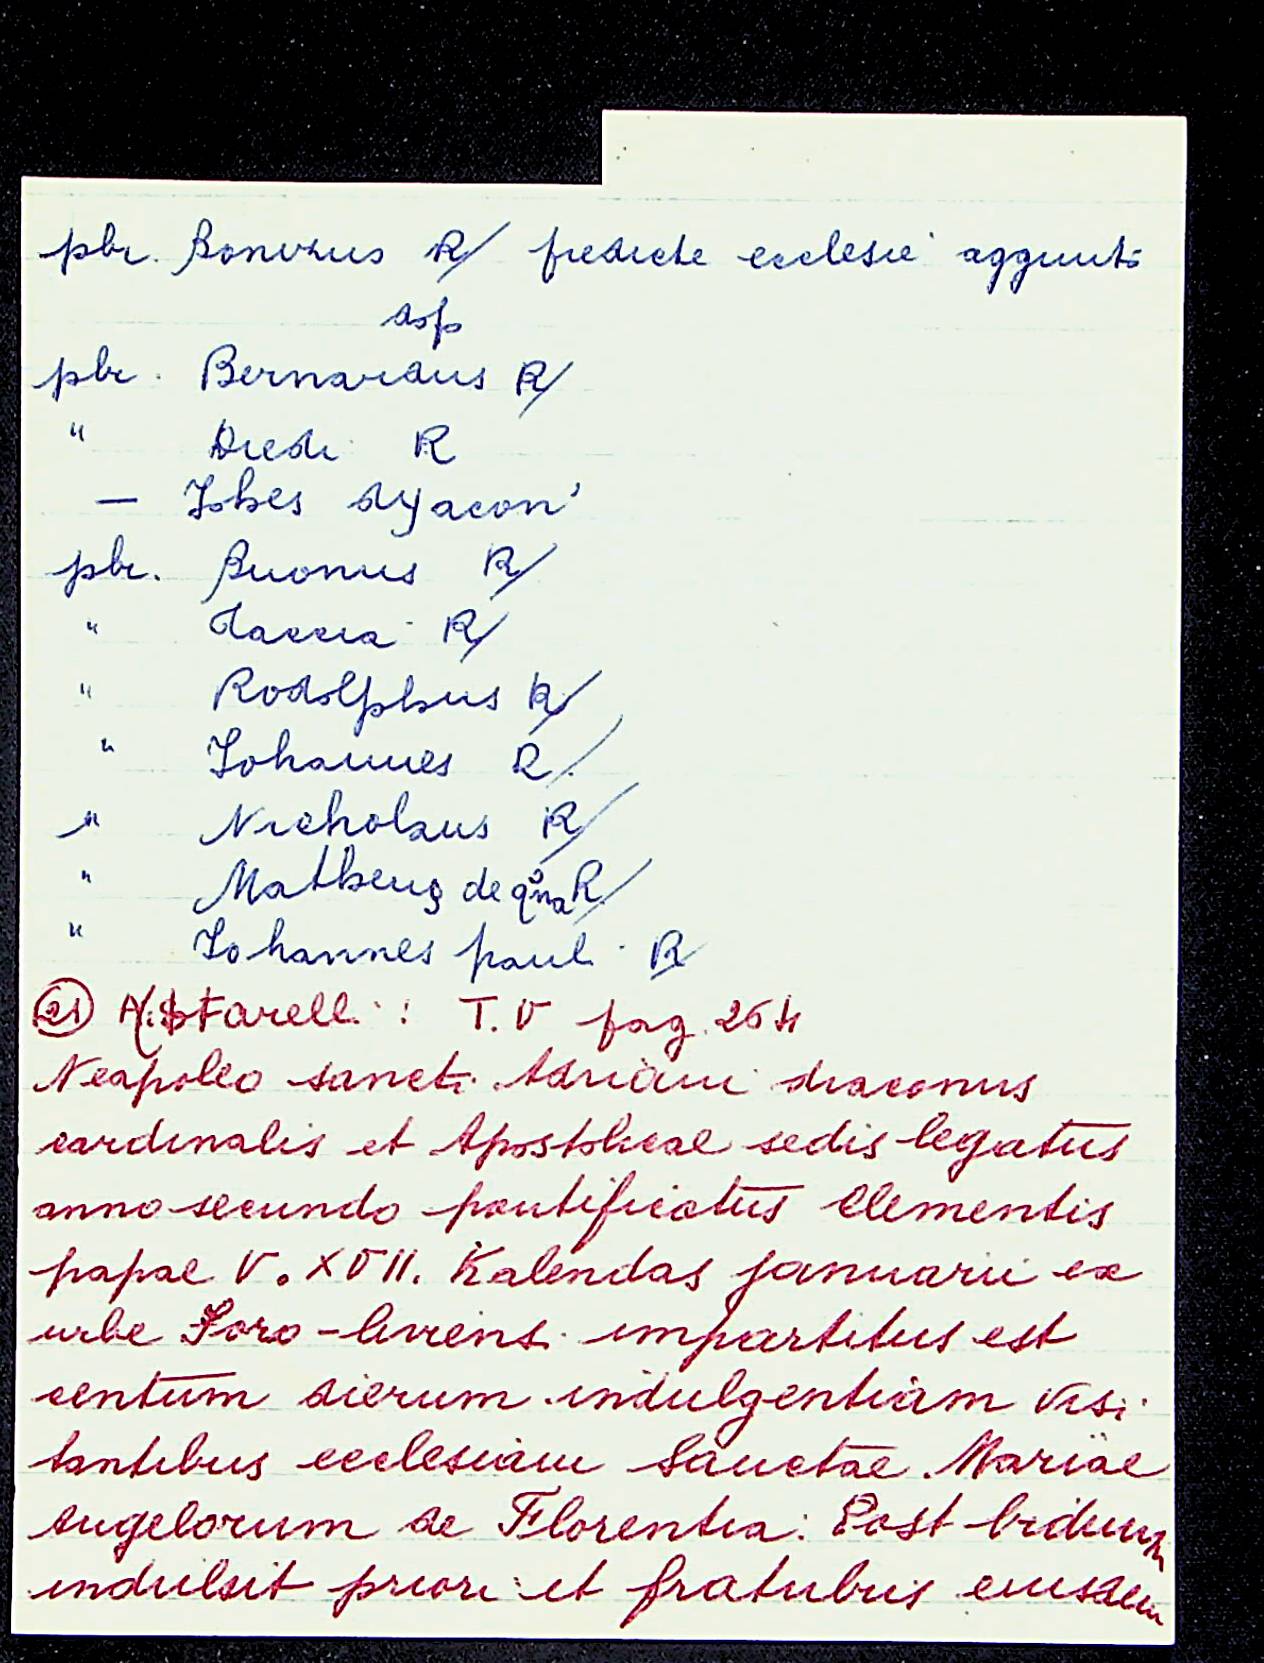 pbr. Bonizus R/ predicte ecclesie aggiunto
dop
pbr. Bernardus R/
" Diedi R
— Johes dyacon'
pbr. Buonus R/
" Iaccia R/
" Rodolphus R/
" Johannes R/.
" Nicholaus R/
" Matheus de R/
" Johannes pauli R
(21) Farelli : T. V pag. 264
Neapoleo sancti Adriani diaconus
cardinalis et Apostolicae sedis legatus
anno secundo pontificatus Clementis
papae V. XVII. Kalendas januarii ex
urbe Foro-liviensi impartitus est
centum dierum indulgentiam visi
tantibus ecclesiam Sanctae Mariae
Angelorum de Florentia: Post biduum
indulsit priori et fratribus eiusdem